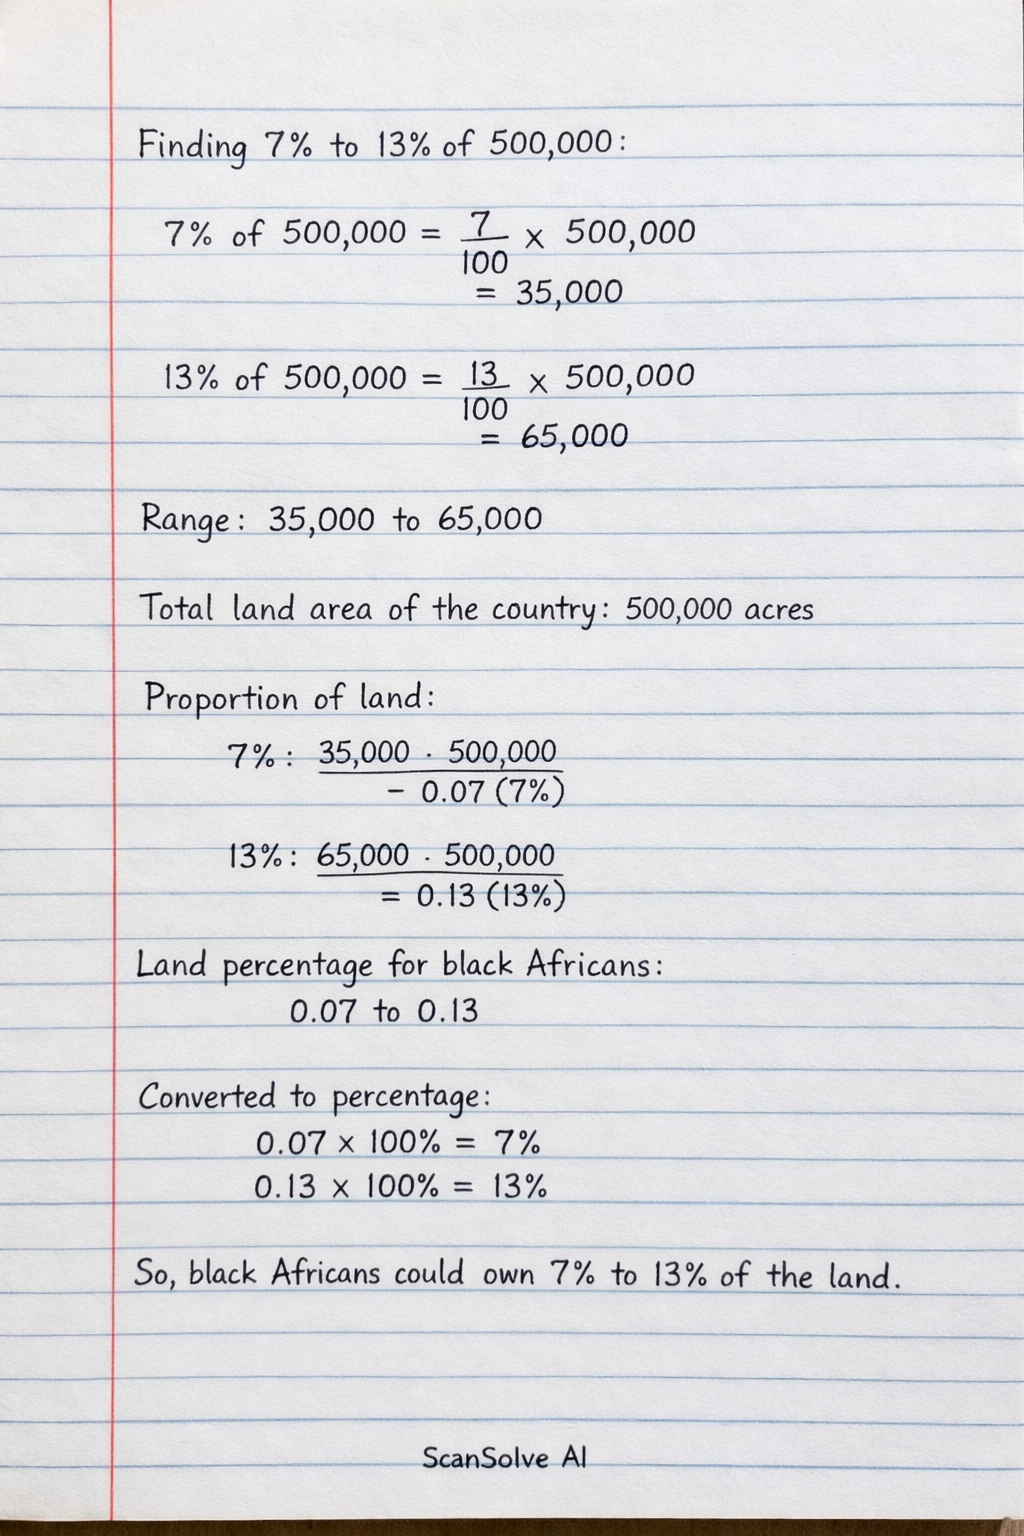 Finding 7% to 13% of 500,000:
7% of 500,000 = 7/100 × 500,000
= 35,000
13% of 500,000 = 13/100 × 500,000
= 65,000
Range: 35,000 to 65,000
Total land area of the country: 500,000 acres
Proportion of land:
7%: 35,000 · 500,000
– 0.07 (7%)
13%: 65,000 · 500,000
= 0.13 (13%)
Land percentage for black Africans:
0.07 to 0.13
Converted to percentage:
0.07 × 100% = 7%
0.13 × 100% = 13%
So, black Africans could own 7% to 13% of the land.
ScanSolve AI